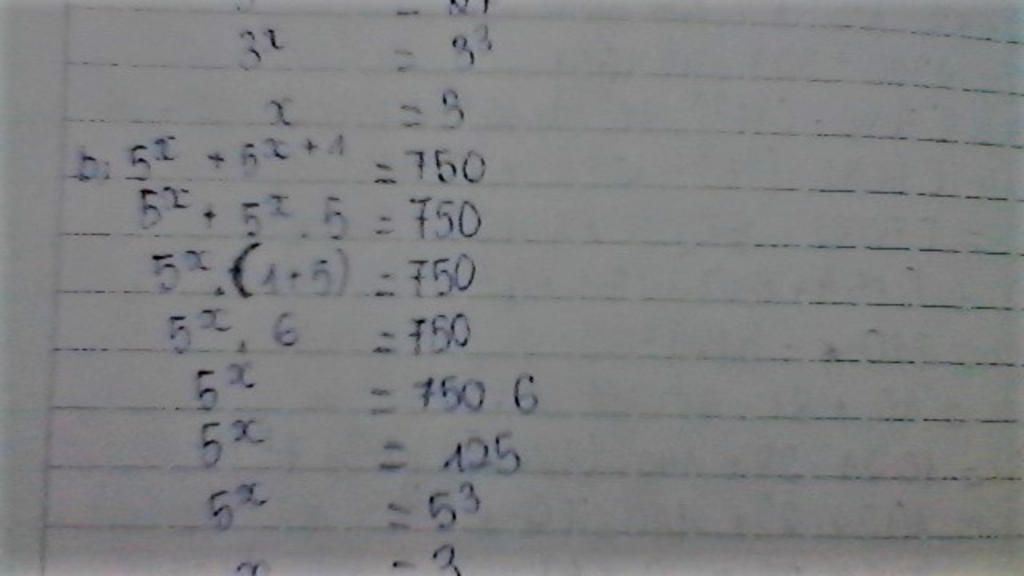 3ˣ = 3³
x = 3
b: 5ˣ + 5ˣ⁺¹ = 750
5ˣ + 5ˣ . 5 = 750
5ˣ . (1+5) = 750
5ˣ . 6 = 750
5ˣ = 750 6
5ˣ = 125
5ˣ = 5³
x = 3